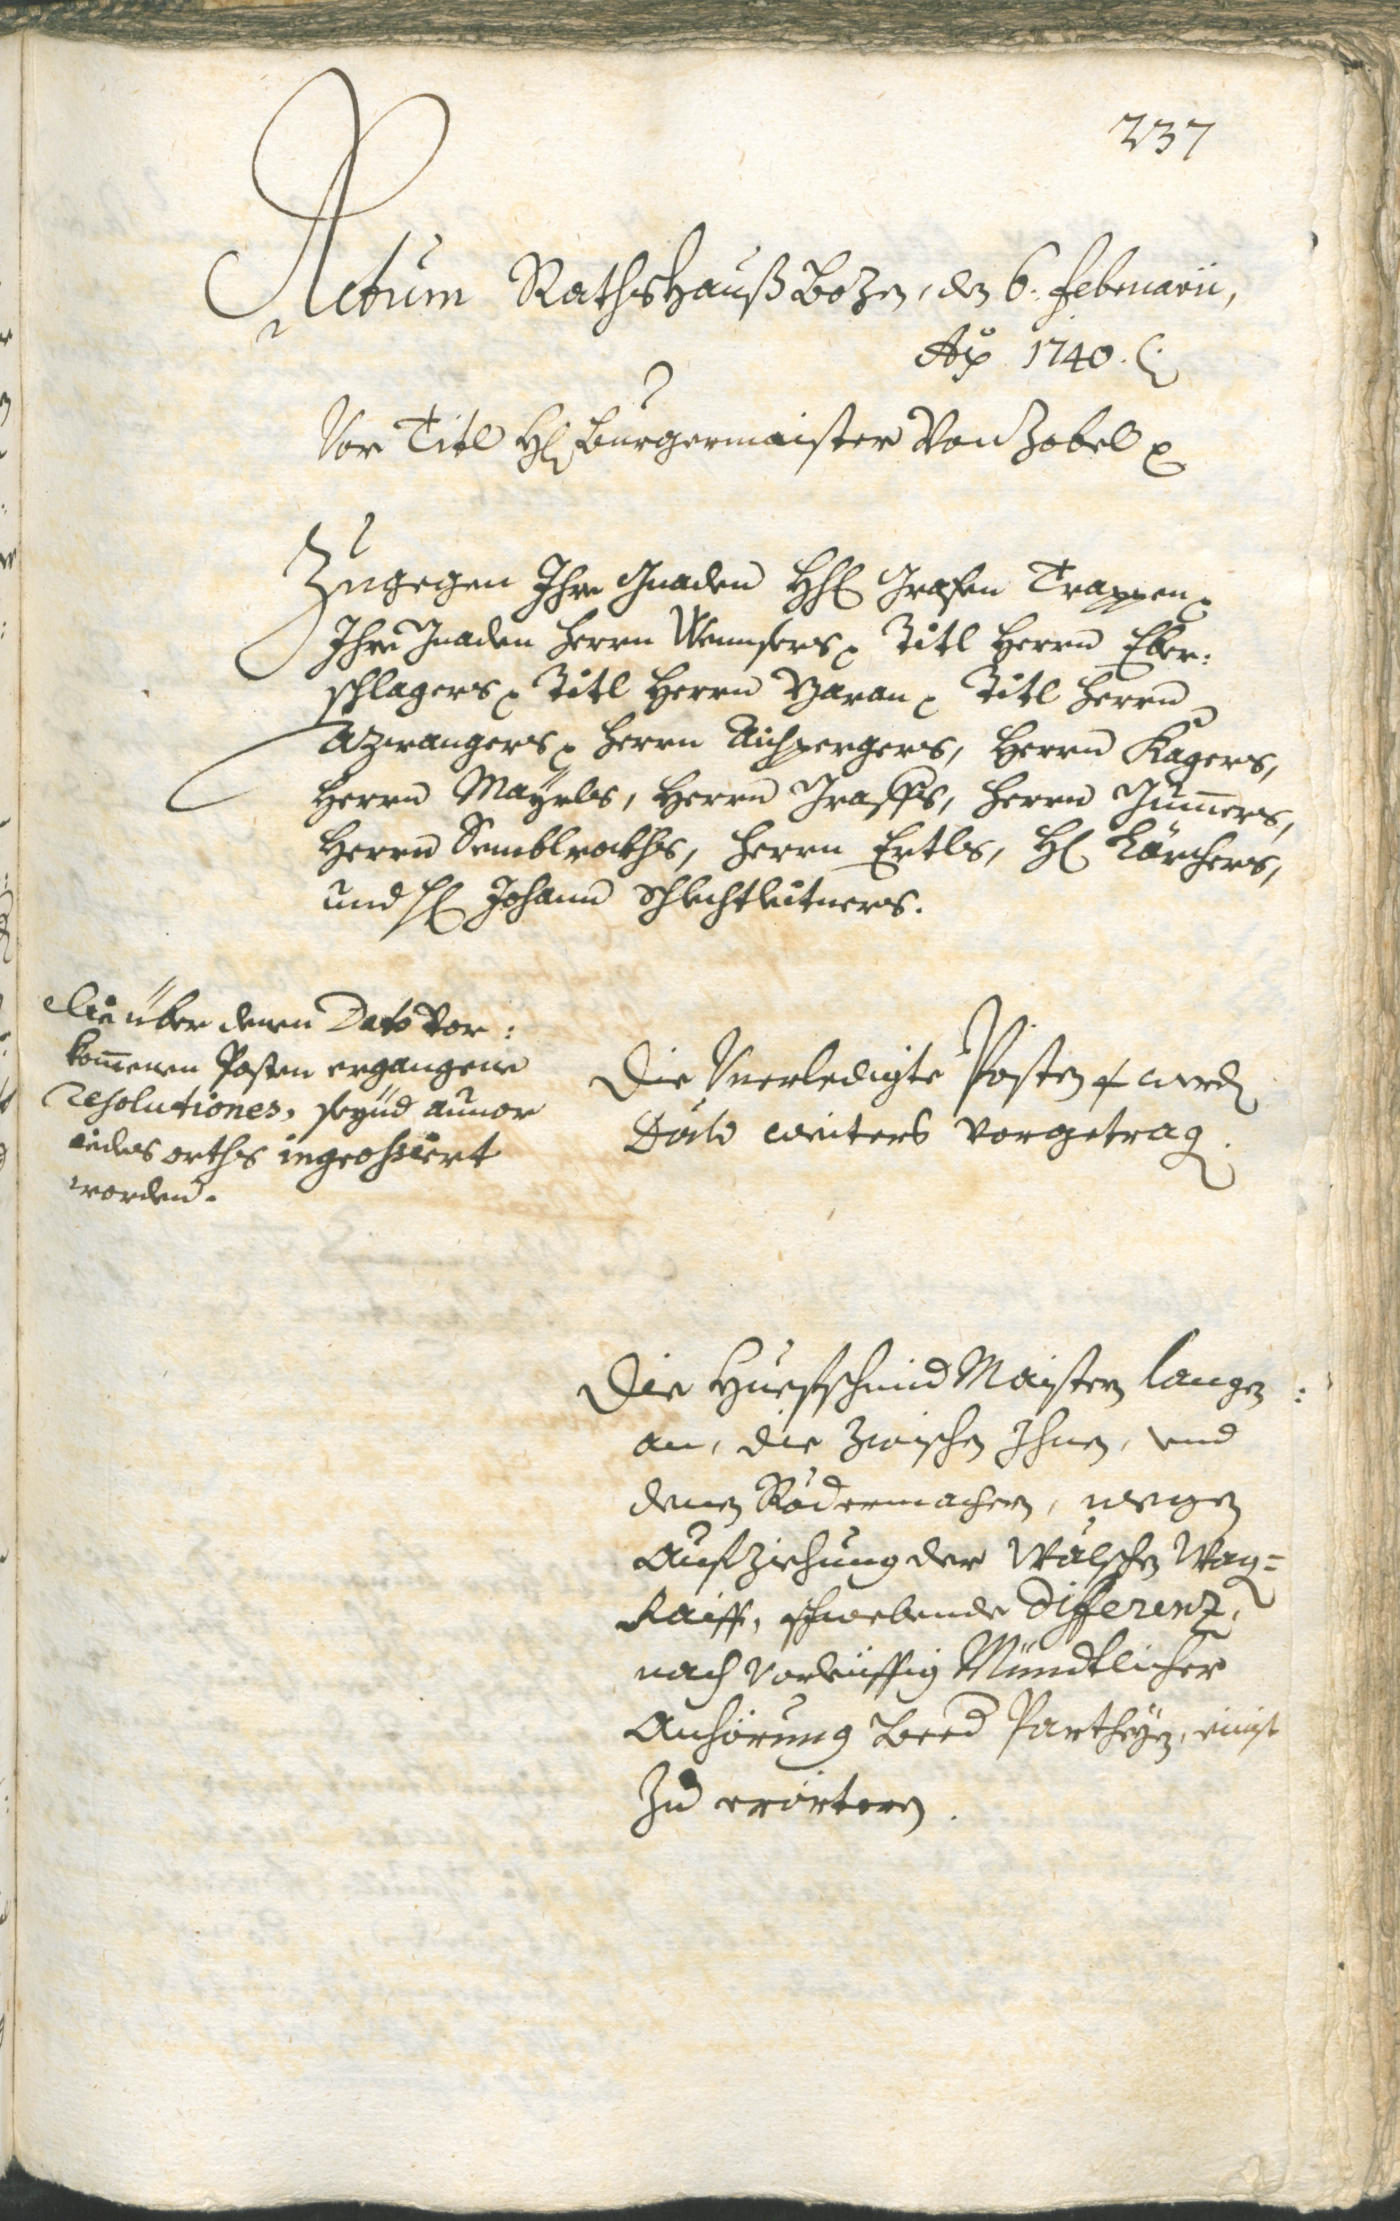 237
Actum Rathshauß Bozen, den 6. Februarii,
Aõ 1740.
Vor Titl H. Burgermaister Von Zobel
Zugegen Ihro Gnaden H. Grafen Trappen
Ihro Gnaden Herrn Wennsers Titl Herrn Eber:
schlagers Titl Herrn Titl Herrn
Azwangers Herrn Aichpergers, Herrn Kagers,
Herrn Mayrls, Herrn Graffs, Herrn Gum̄ers,
Herrn Semblrokhs, Herrn Ertls, H. Kärchers,
und H. Johann Schlechtleitners.
Die über denen Dato vor:
kom̄enen Posten ergangene
resolutiones, seynd annor
iedes orths ingrossiert
worden.
Die Unerledigte Posten werd
Dato weiters vorgetrag.
Die Huefschmid Maister langen
an, die zwischen Ihnen, und
denen Rödermachern, wegen
Aufziehung der Wälschen Wag=
Raiff, schwebende Differenz,
nach vorleiffig Mündtlicher
Anhörung beed Partheyen, einist
zu erörtern.